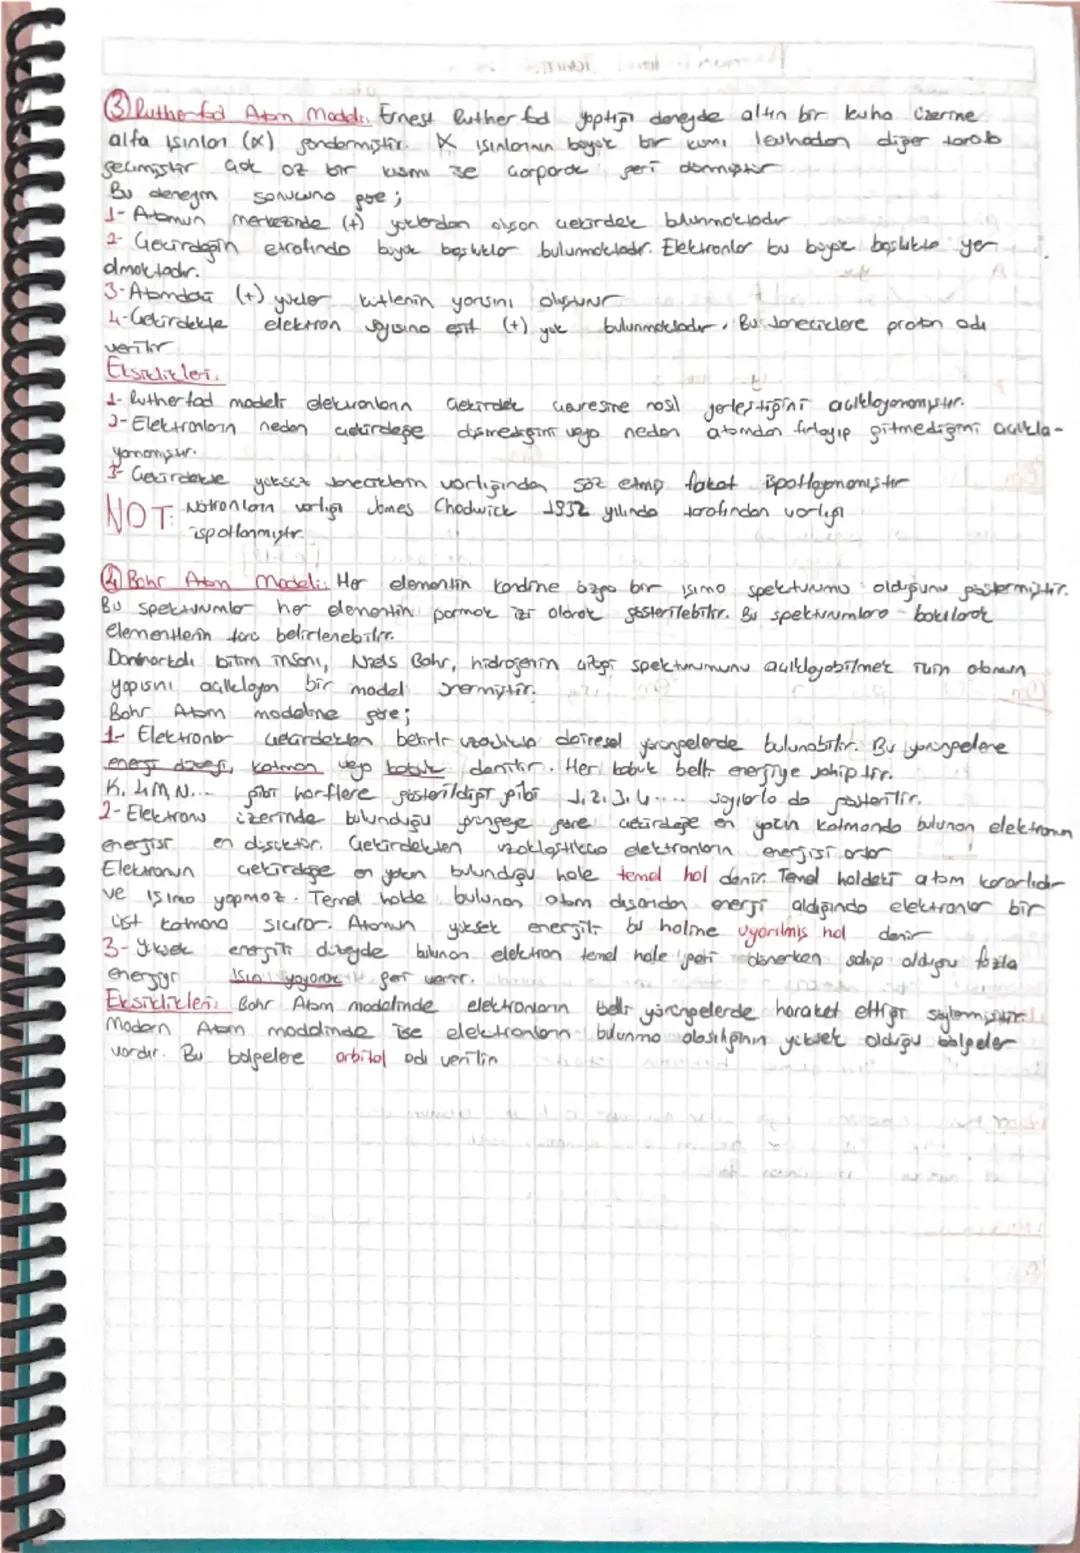 ③ Rutherfod Atom Modeli: Ernest Rutherfod yaptığı deneyde altın bir levha üzerine
alfa ışınları (α) göndermiştir. α ışınlarının büyük bir kısmı levhadan diğer tarafa
geçmiştir çok az bir kısmı ise çarparak geri dönmüştür
Bu deneyin sonucuna göre;
1- Atomun merkezinde (+) yüklerden oluşan çekirdek bulunmaktadır
2- Çekirdeğin etrafında büyük boşluklar bulunmaktadır. Elektronlar bu büyük boşlukta yer
almaktadır.
3- Atomdaki (+) yükler kütlenin yarısını oluşturur
4- Çekirdekte elektron sayısına eşit (+) yük bulunmaktadır. Bu taneciklere proton adı
verilir
Eksiklikleri:
1- Rutherfod modeli elektronların çekirdek çevresine nasıl yerleştiğini açıklayamamıştır.
2- Elektronların neden çekirdeğe düşmediğini veya neden atomdan fırlayıp gitmediğini açıkla-
yamamıştır.
3- Çekirdekte yüksüz taneciklerin varlığından söz etmiş fakat ispatlayamamıştır
NOT: Nötronların varlığı James Chadwick 1932 yılında tarafından varlığı
ispatlanmıştır.
④ Bohr Atom Modeli: Her elementin kendine özgü bir ışıma spekturumu olduğunu göstermiştir.
Bu spekturumlar her elementin parmak izi olarak gösterilebilir. Bu spekturumlara bakılarak
elementlerin türü belirlenebilir.
Danimarkalı bilim insanı, Niels Bohr, hidrojenin çizgi spekturumunu açıklayabilmek için atomun
yapısını açıklayan bir model önermiştir.
Bohr Atom modeline göre;
1- Elektronlar çekirdekten belirli uzaklıkta dairesel yörüngelerde bulunabilir. Bu yörüngelere
enerji düzeyi, katman veya kabuk denilir. Her kabuk belli enerjiye sahiptir.
K, L, M, N... gibi harflere gösterildiği gibi 1, 2, 3, 4.... sayılarla da gösterilir.
2- Elektronu üzerinde bulunduğu yörüngeye göre çekirdeğe en yakın katmanda bulunan elektronun
enerjisi en düşüktür. Çekirdekten uzaklaştıkça elektronların enerjisi artar
Elektronun çekirdeğe en yakın bulunduğu hale temel hal denir. Temel haldeki atom kararlıdır
ve ışıma yapmaz. Temel halde bulunan atom dışarıdan enerji aldığında elektronlar bir
üst katmana sıçrar. Atomun yüksek enerjili bu haline uyarılmış hal denir
3- Yüksek enerjili düzeyde bulunan elektron temel hale geri dönerken sahip olduğu fazla
enerjiyi ışın yayarak geri verir.
Eksiklikleri: Bohr Atom modelinde elektronların belli yörüngelerde haraket ettiği söylenmiştir
Modern Atom modelinde ise elektronların bulunma olasılığının yüksek olduğu bölgeler
vardır. Bu bölgelere orbital adı verilin